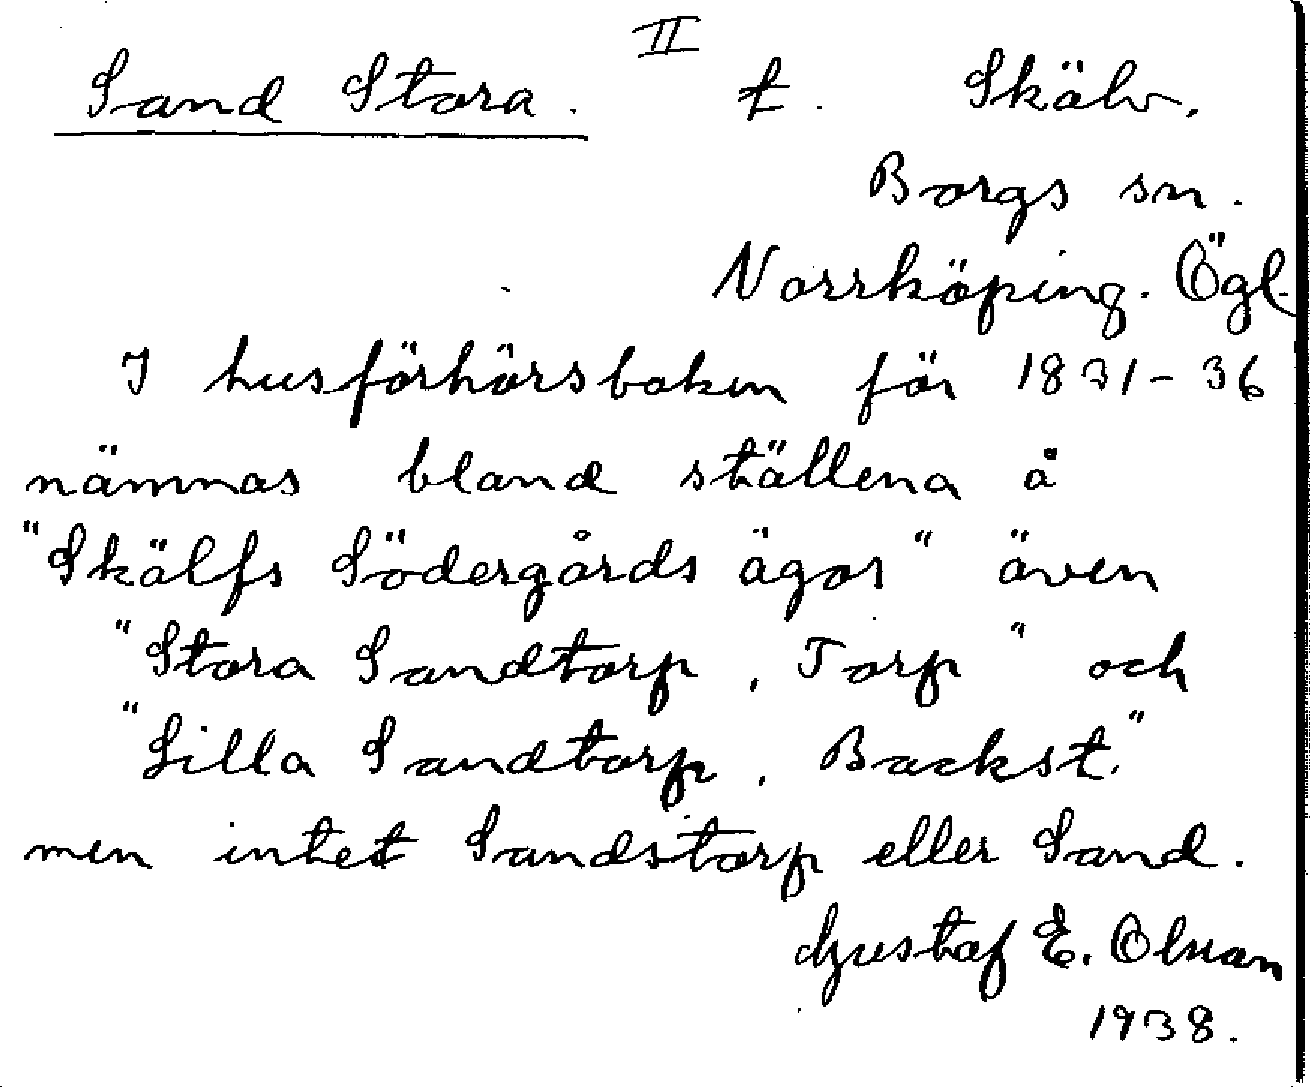 II
Sand Stora. t. Skälv,
Borgs sn.
Norrköping. Ögl.
I husförhörsboken för 1831-36
nämnas bland ställena å
"Skälfs Södergårds ägor" även
"Stora Sandtorp, Torp" och
"Lilla Sandtorp, Backst."
men intet Sandstorp eller Sand.
Gustaf E. Olsson
1938.